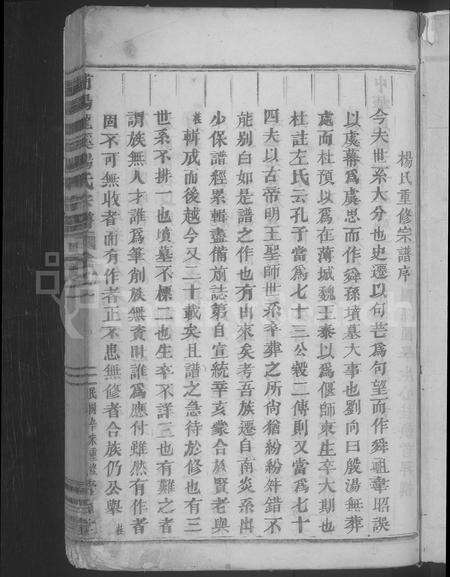 楊氏重修宗譜序
今夫世系大分也史遷以句芒為句望而作舜祖韋昭誤
以虞幕為虞思而作舜孫墳墓大事也劉向曰殷湯無葬
處而杜預以為在薄城魏王泰以為偃師東生卒大期也
杜註左氏云孔子當為七十三公穀二傳則又當為七十
四夫以古帝明王聖師世系卒葬之所尙猶紛紛舛錯不
能別白如是譜之作也有由來矣考吾族遷自南炎系出
少保譜經累輯盡備前誌第自宣統辛亥蒙合族賢老與
桂輯成而後越今又二十載矣且譜之急待於修也有三
世系不排一也墳墓不標二也生卒不詳三也有難之者
謂族無人才誰為筆削族無賚財誰為應付雖然有作者
固不可無收者而有作者正不患無修者合族仍公舉桂
民國辛未重修